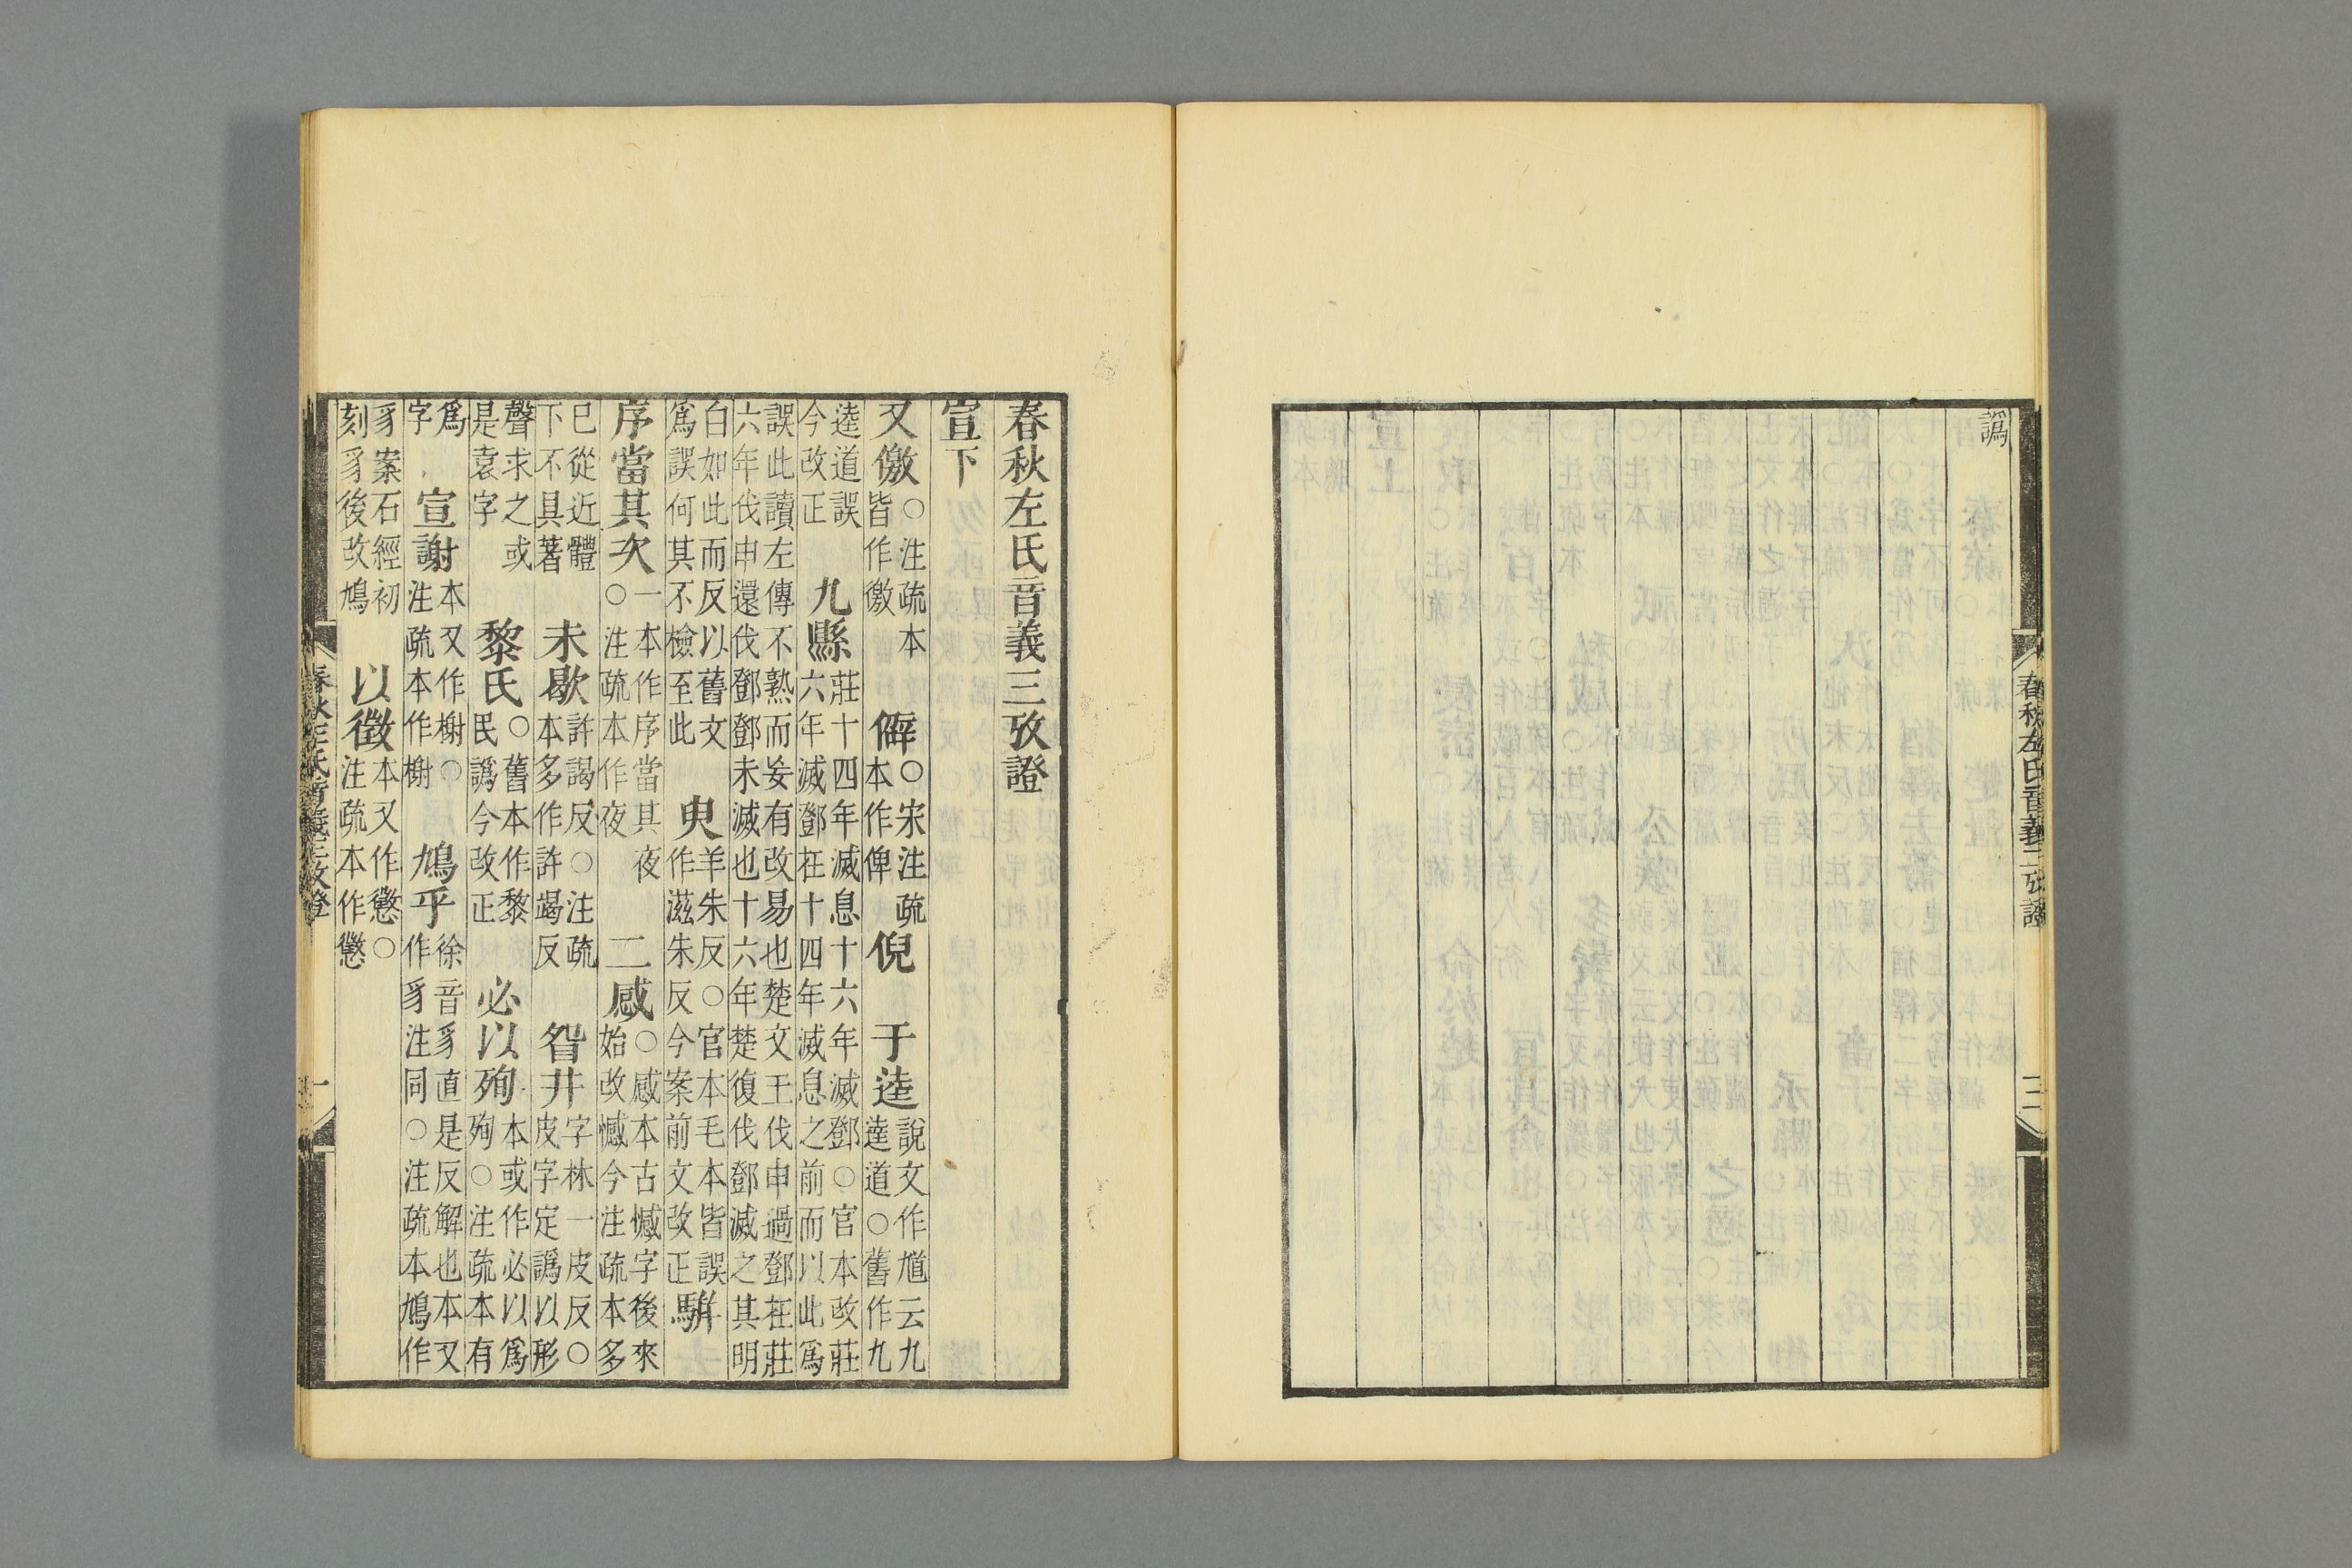 譌
春秋左氏音義二攷證
春秋左氏音義三攷證
宣下
又儌○注疏本皆作徼　僻○宋注疏本作俾　倪　于逵說文作馗云九逵道○舊作九
逵道誤今改正　九縣莊十四年滅息十六年滅鄧○官本改莊六年滅鄧在十四年滅息之前而以此爲
誤此讀左傳不熟而妄有改易也楚文王伐申過鄧在莊六年伐申還伐鄧鄧未滅也十六年楚復伐鄧滅之其明
白如此而反以舊文爲誤何其不檢至此　臾羊朱反○官本毛本皆誤作滋朱反今案前文改正　騈
序當其次一本作序當其夜○注疏本作夜　二感○感本古憾字後來始改憾今注疏本多
已從近體下不具著　未歇許謁反○注疏本多作許竭反　眢井字林一皮反○皮字定譌以形
聲求之或是袁字　黎氏○舊本作黎民譌今改正　必以殉本或作必以爲殉○注疏本有
爲字　宣謝本又作榭○注疏本作榭　鳩乎徐音豸直是反解也本又作豸注同○注疏本鳩作
豸案石經初刻豸後改鳩　以徵本又作懲○注疏本作懲
春秋左氏音義三攷證　一